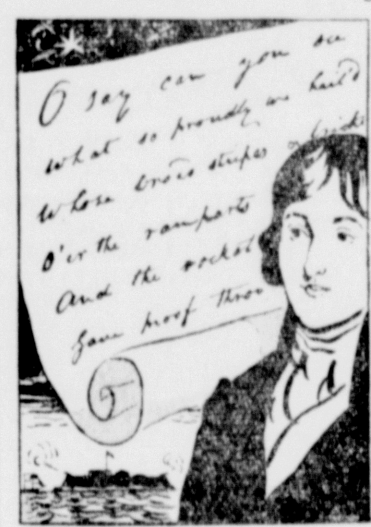 O say can you see
what so proudly we hail'd
Whose broad stripes & bright
O'er the ramparts
And the rocket
Gave proof throu